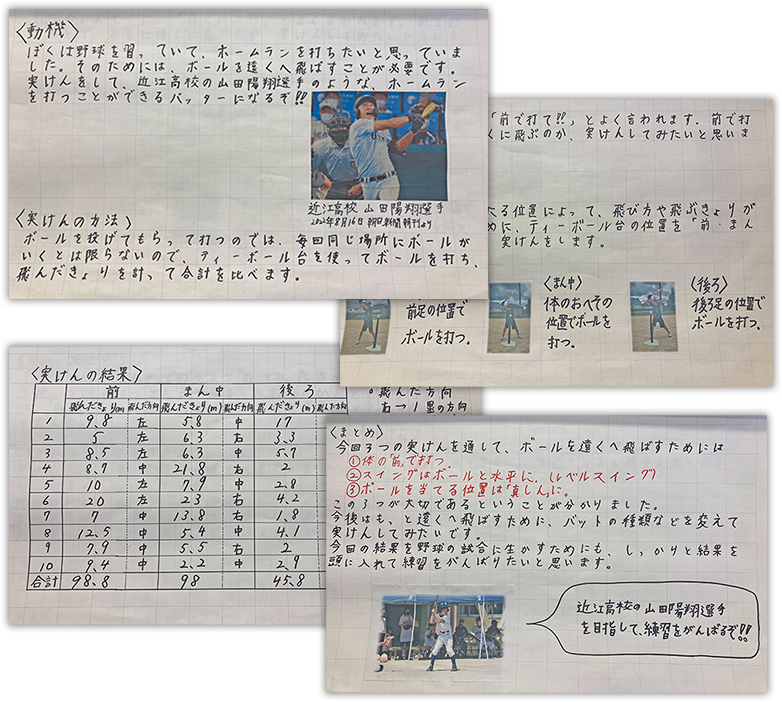 〈動機〉
ぼくは野球を習っていて、ホームランを打ちたいと思っていま
した。そのためには、ボールを遠くへ飛ばすことが必要です。
実けんをして、近江高校の山田陽翔選手のような、ホームラン
を打つことができるバッターになるぞ!!
近江高校 山田陽翔選手
2022年8月16日 朝日新聞 朝刊より
〈実けんの方法〉
ボールを投げてもらって打つのでは、毎回同じ場所にボールが
いくとは限らないので、ティーボール台を使ってボールを打ち、
飛んだきょりを計って合計を比べます。
「前で打て!!」とよく言われます。前で打
に飛ぶのか、実けんしてみたいと思いま
たる位置によって、飛び方や飛ぶきょりが
めに、ティーボール台の位置を「前・まん
実けんをします。
前足の位置で
ボールを打つ。
〈まん中〉
体のおへその
位置でボールを
打つ。
〈後ろ〉
後ろ足の位置で
ボールを打つ。
〈実けんの結果〉
前 まん中 後ろ
飛んだきょり(m) 飛んだ方向 飛んだきょり(m) 飛んだ方向 飛んだきょり(m) 飛んだ方向
1 9.8 左 5.8 中 17
2 5 左 6.3 右 3.3
3 8.5 左 6.3 中 5.7
4 8.7 中 21.8 右 2
5 10 左 7.9 中 2.8
6 20 左 23 右 4.2
7 7 中 13.8 右 1.8
8 12.5 中 5.4 中 4.1
9 7.9 中 5.5 右 2
10 9.4 中 2.2 中 2.9
合計 98.8 98 45.8
飛んだ方向
右→1塁の方向
〈まとめ〉
今回3つの実けんを通して、ボールを遠くへ飛ばすためには
①体の「前」で打つ。
②スイングはボールと水平に。(レベルスイング)
③ボールを当てる位置は「真しん」に。
この3つが大切であるということが分かりました。
今後はもっと遠くへ飛ばすために、バットの種類などを変えて
実けんしてみたいです。
今回の結果を野球の試合に生かすためにも、しっかりと結果を
頭に入れて練習をがんばりたいと思います。
近江高校の山田陽翔選手
を目指して、練習をがんばるぞ!!